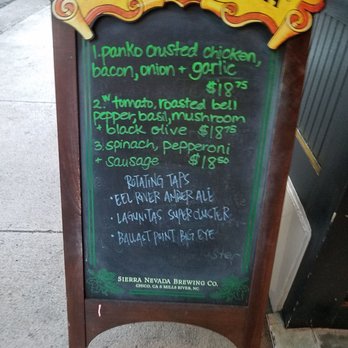 1. panko crusted chicken,
bacon, onion + garlic
$18.75
2. w tomato, roasted bell
pepper, basil, mushroom
+ black olive $18.75
3. spinach, pepperoni
+ sausage $18.50
ROTATING TAPS
• EEL RIVER AMBER ALE
• LAGUNITAS SUPER CLUSTER
• BALLAST POINT BIG EYE
SIERRA NEVADA BREWING CO.
CHICO, CA & MILLS RIVER, NC